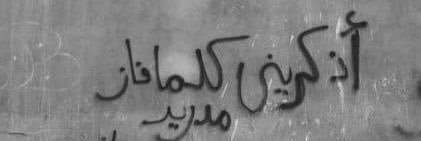 أذكريني كلما فاز
مدريد